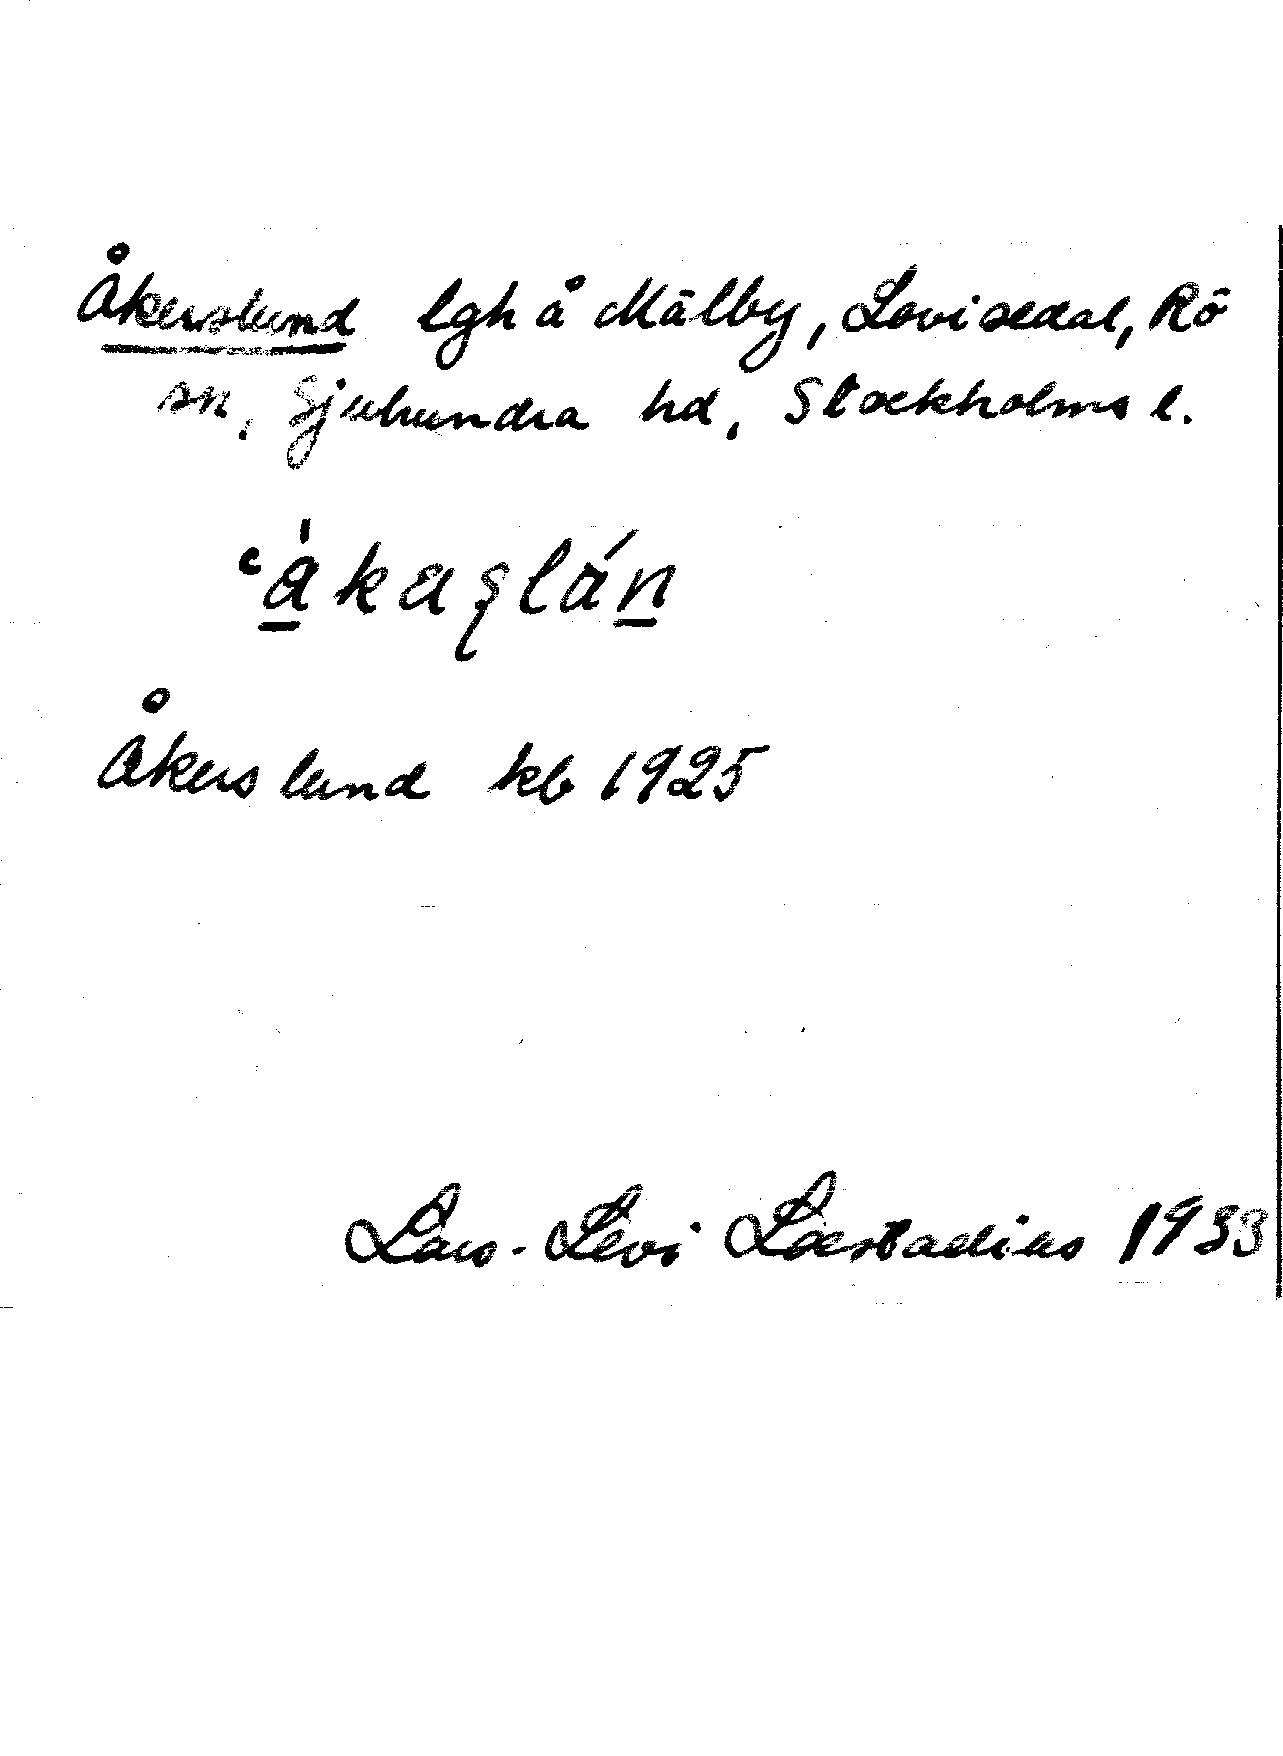 Åkerslund lgh å Mälby, Lovisedal, Rö
sn, Sjuhundra hd, Stockholms l.
Åkerslund kb 1925
Lars-Levi Læstadius 1933